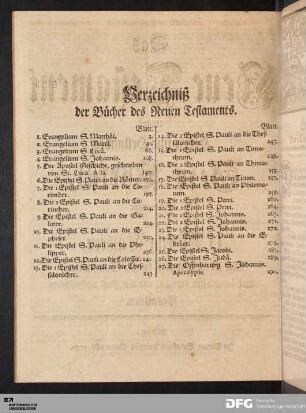 Verzeichniß
der Bücher des Neuen Testaments.
Blatt.
1. Evangelium S. Matthäi. 3.
2. Evangelium S. Marci. 41.
3. Evangelium S. Lucä. 66.
4. Evangelium S. Johannis.
5. Der Apostel Geschicht, geschrieben
von St. Luca 140.
6. Die Epistel S. Pauli an die Römer.
7. Die 1 Epistel S. Pauli an die Co-
rinther. 197.
8. Die 2 Epistel S. Pauli an die Co-
rinther. 214.
9. Die Epistel S. Pauli an die Ga-
later.
10. Die Epistel S. Pauli an die E-
pheser. 230.
11. Die Epistel S. Pauli an die Phi-
lipper. 236.
12. Die Epistel S. Pauli an die Colosser. 240.
13. Die 1 Epistel S. Pauli an die Thes-
salonicher. 243
Blatt.
14. Die 2 Epistel S. Pauli an die Thes-
salonicher. 247.
15. Die 1 Epistel S. Pauli an Timo-
theum. 249.
16. Die 2 Epistel S. Pauli an Timo-
theum.
17. Die Epistel S. Pauli an Titum. 257.
18. Die Epistel S. Pauli an Philemo-
nem.
19. Die 1 Epistel S. Petri. 260.
20. Die 2 Epistel S. Petri.
21. Die 1 Epistel S. Johannis.
22. Die 2 Epistel S. Johannis. 271.
23. Die 3 Epistel S. Johannis. 272.
24. Die Epistel S. Pauli an die E-
bräer.
25. Die Epistel S. Jacobi.
26. Die Epistel S. Judä. 289.
27. Die Offenbarung S. Johannis.
Apocalypsis. 290.
SLUB
DFG
Deutsche
Forschungsgemeinschaft